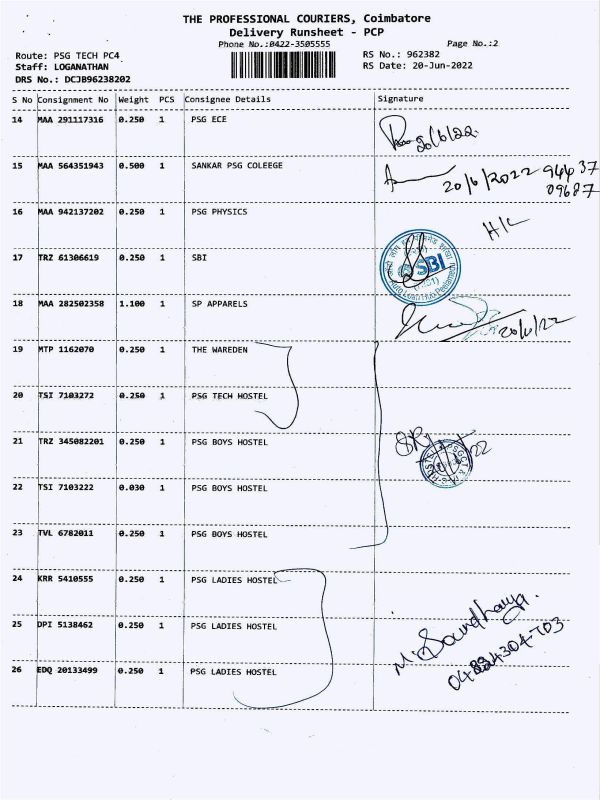 THE PROFESSIONAL COURIERS, Coimbatore
Delivery Runsheet - PCP
Phone No.:0422-3505555 Page No.:2
Route: PSG TECH PC4 RS No.: 962382
Staff: LOGANATHAN RS Date: 20-Jun-2022
DRS No.: DCJB96238202
S No Consignment No Weight PCS Consignee Details Signature
14 MAA 291117316 0.250 1 PSG ECE 20/6/22
15 MAA 564351943 0.500 1 SANKAR PSG COLEEGE 20/6/2022 94437
09687
16 MAA 942137202 0.250 1 PSG PHYSICS
17 TRZ 61306619 0.250 1 SBI SBI
18 MAA 282502358 1.100 1 SP APPARELS 20/6/22
19 MTP 1162070 0.250 1 THE WAREDEN
20 TSI 7103272 0.250 1 PSG TECH HOSTEL
21 TRZ 345082201 0.250 1 PSG BOYS HOSTEL
22 TSI 7103222 0.030 1 PSG BOYS HOSTEL
23 TVL 6782011 0.250 1 PSG BOYS HOSTEL
24 KRR 5410555 0.250 1 PSG LADIES HOSTEL
25 DPI 5138462 0.250 1 PSG LADIES HOSTEL
26 EDQ 20133499 0.250 1 PSG LADIES HOSTEL